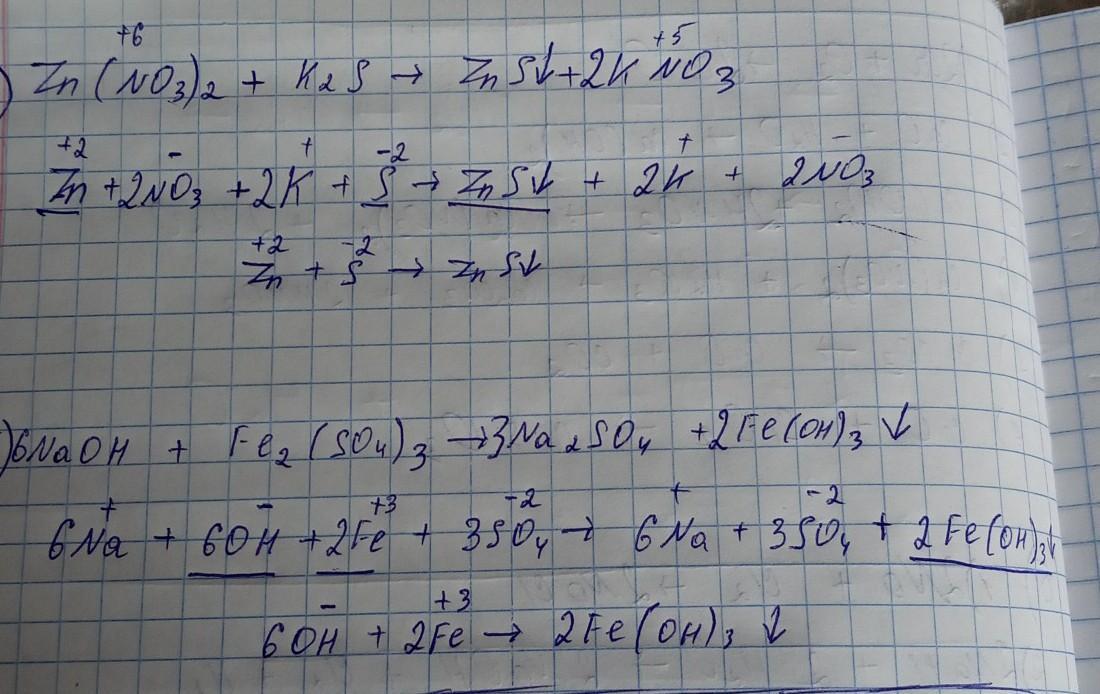 +6 +5
) Zn(NO3)2 + K2S → ZnS↓ + 2KNO3
+2 - + -2 + -
Zn + 2NO3 + 2K + S → ZnS↓ + 2K + 2NO3
+2 -2
Zn + S → ZnS↓
) 6NaOH + Fe2(SO4)3 → 3Na2SO4 + 2Fe(OH)3 ↓
+ - +3 -2 + -2
6Na + 6OH + 2Fe + 3SO4 → 6Na + 3SO4 + 2Fe(OH)3↓
- +3
6OH + 2Fe → 2Fe(OH)3 ↓